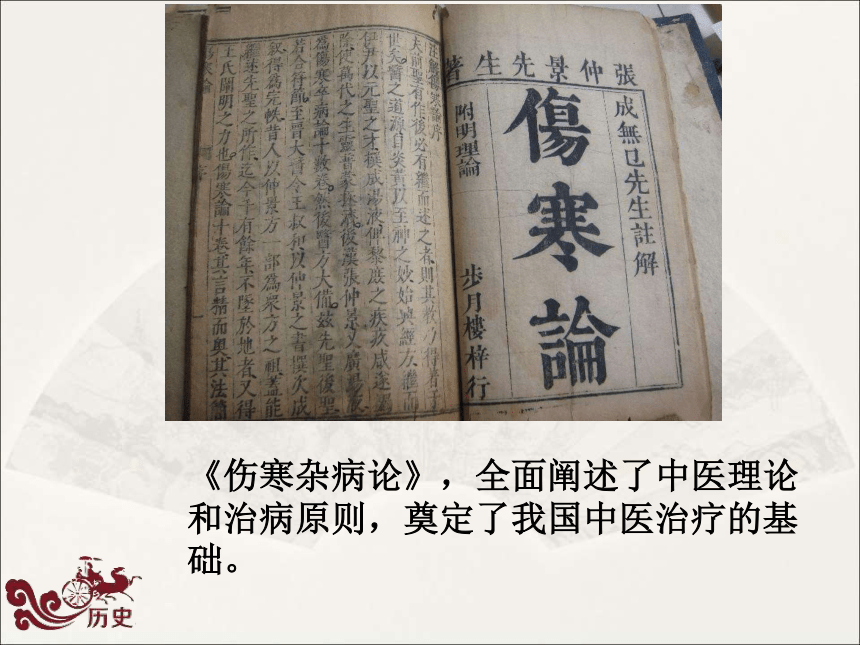 張仲景先生著
成無已先生註解
傷寒論
附明理論
步月樓梓行
註解傷寒論序
夫前聖有作後必有繼而述之者則其教乃得著于
世矣醫之道源自炎黃以至神之妙始興經方繼而
伊尹以元聖之才撰成湯液俾黎庶之疾疚咸遂蠲
除使萬代之生靈普蒙拯濟後漢張仲景又廣湯液
為傷寒卒病論十數卷然後醫方大備茲先聖後聖
若合符節至晉太醫令王叔和以仲景之書撰次成
敘得為完帙昔人以仲景方一部為眾方之祖蓋能
繼述先聖之所作迄今千有餘年不墜於地者又得
王氏闡明之力也傷寒論十卷其言精而奧其法簡
《伤寒杂病论》,全面阐述了中医理论
和治病原则,奠定了我国中医治疗的基
础。
历史